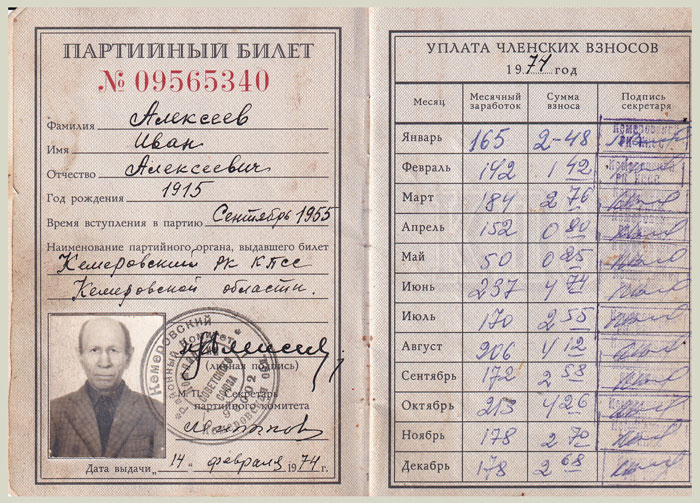 ПАРТИЙНЫЙ БИЛЕТ
№ 09565340
Фамилия Алексеев
Имя Иван
Отчество Алексеевич
Год рождения 1915
Время вступления в партию Сентябрь 1955
Наименование партийного органа, выдавшего билет
Кемеровский РК КПСС
Кемеровской области.
(личная подпись)
М. П. Секретарь
партийного комитета
Дата выдачи „14 " февраля 1974 г.
УПЛАТА ЧЛЕНСКИХ ВЗНОСОВ
1974 год
Месяц Месячный заработок Сумма взноса Подпись секретаря
Январь 165 2-48
Февраль 142 1 42
Март 184 2 76
Апрель 152
Май 50
Июнь 237 4 74
Июль 170 2 55
Август 206 4 12
Сентябрь 172 2 58
Октябрь 213 4 26
Ноябрь 178 2 70
Декабрь 178 2 68